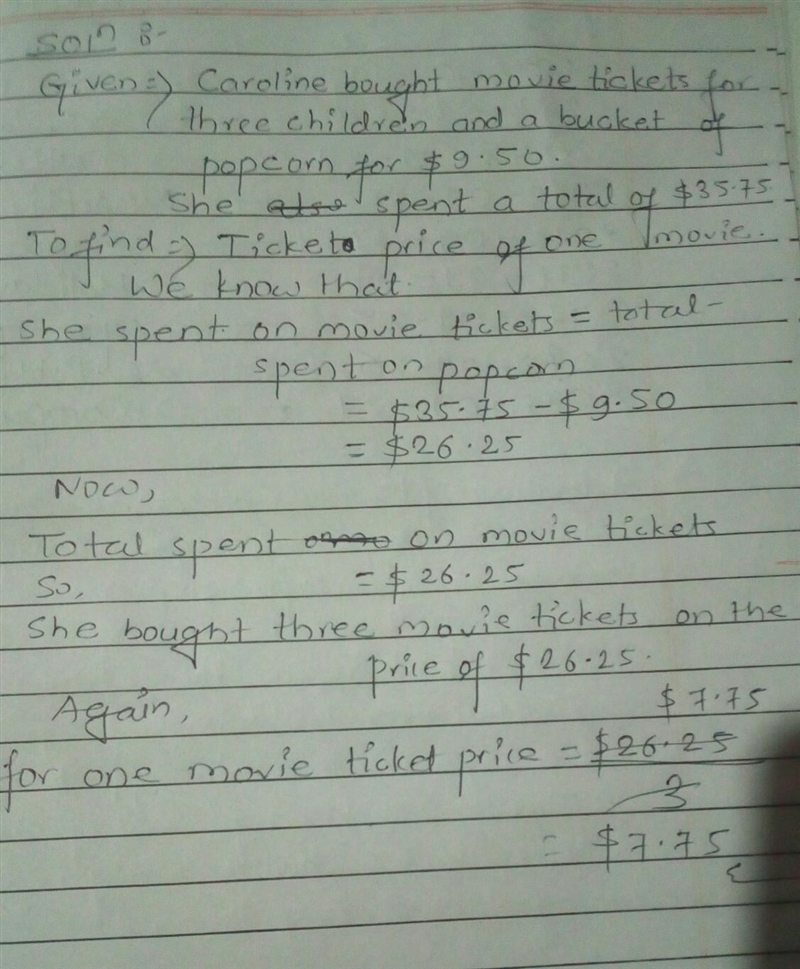 Soln :-
Given => Caroline bought movie tickets for
three children and a bucket of
popcorn for $9.50.
She also spent a total of $35.75
To find => Ticket price of one movie.
We know that.
She spent on movie tickets = total -
spent on popcorn
= $35.75 - $9.50
= $26.25
Now,
Total spent on movie tickets
So, = $26.25
She bought three movie tickets on the
price of $26.25.
Again, $7.75
for one movie ticket price = $26.25
3
= $7.75